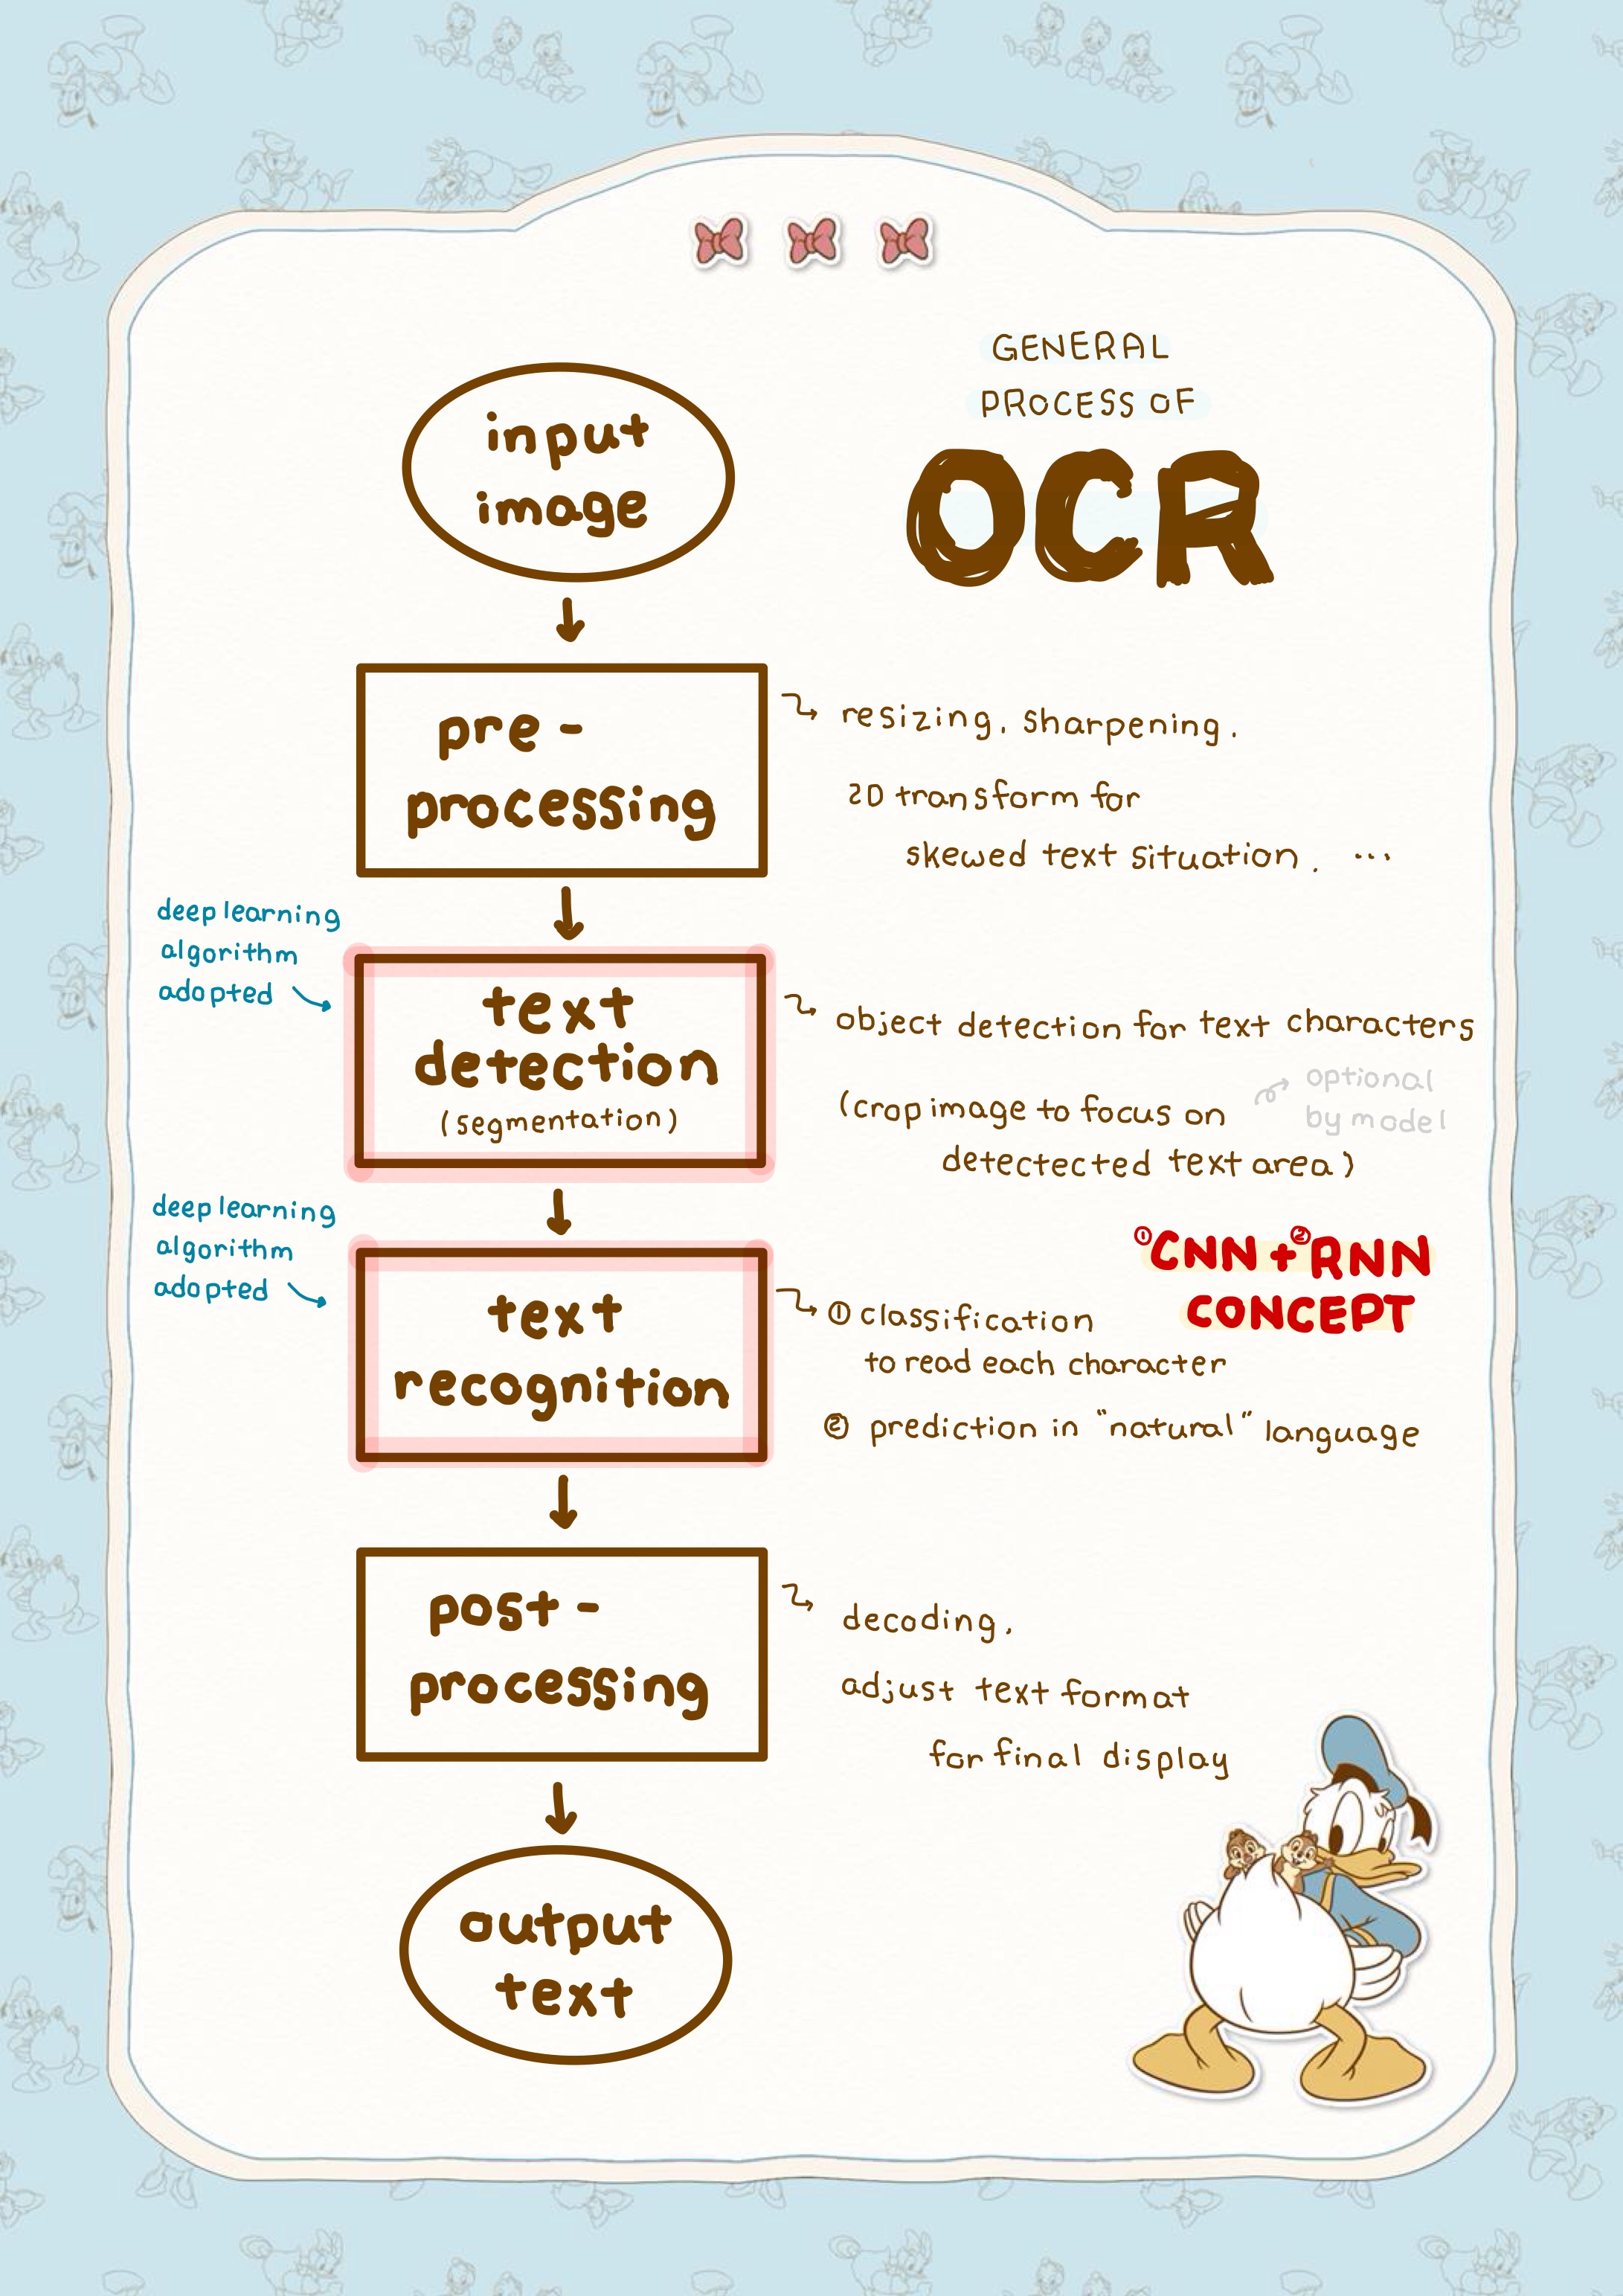 GENERAL
PROCESS OF
OCR
input
image
pre -
processing
resizing, sharpening,
2D transform for
skewed text situation, ...
deep learning
algorithm
adopted
text
detection
(segmentation)
object detection for text characters
(crop image to focus on
detectected text area)
optional
by model
deep learning
algorithm
adopted
text
recognition
① CNN + ② RNN
CONCEPT
① classification
to read each character
② prediction in "natural" language
post -
processing
decoding,
adjust text format
for final display
output
text